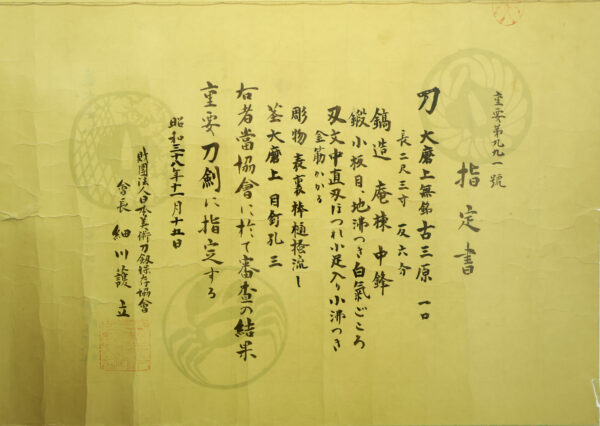 重要第九九一號
指定書
刀 大磨上無銘古三原 一口
長二尺三寸 反六分
鎬造 庵棟 中鋒
鍛小板目 地沸つき白氣ごころ
刃文中直刃ほつれ小足入り小沸つき
金筋かかる
彫物 表裏棒樋掻流し
茎大磨上 目釘孔 三
右者當協會に於て審査の結果
重要刀劍に指定する
昭和三十八年十一月十五日
財團法人日本美術刀劍保存協會
會長 細川護立